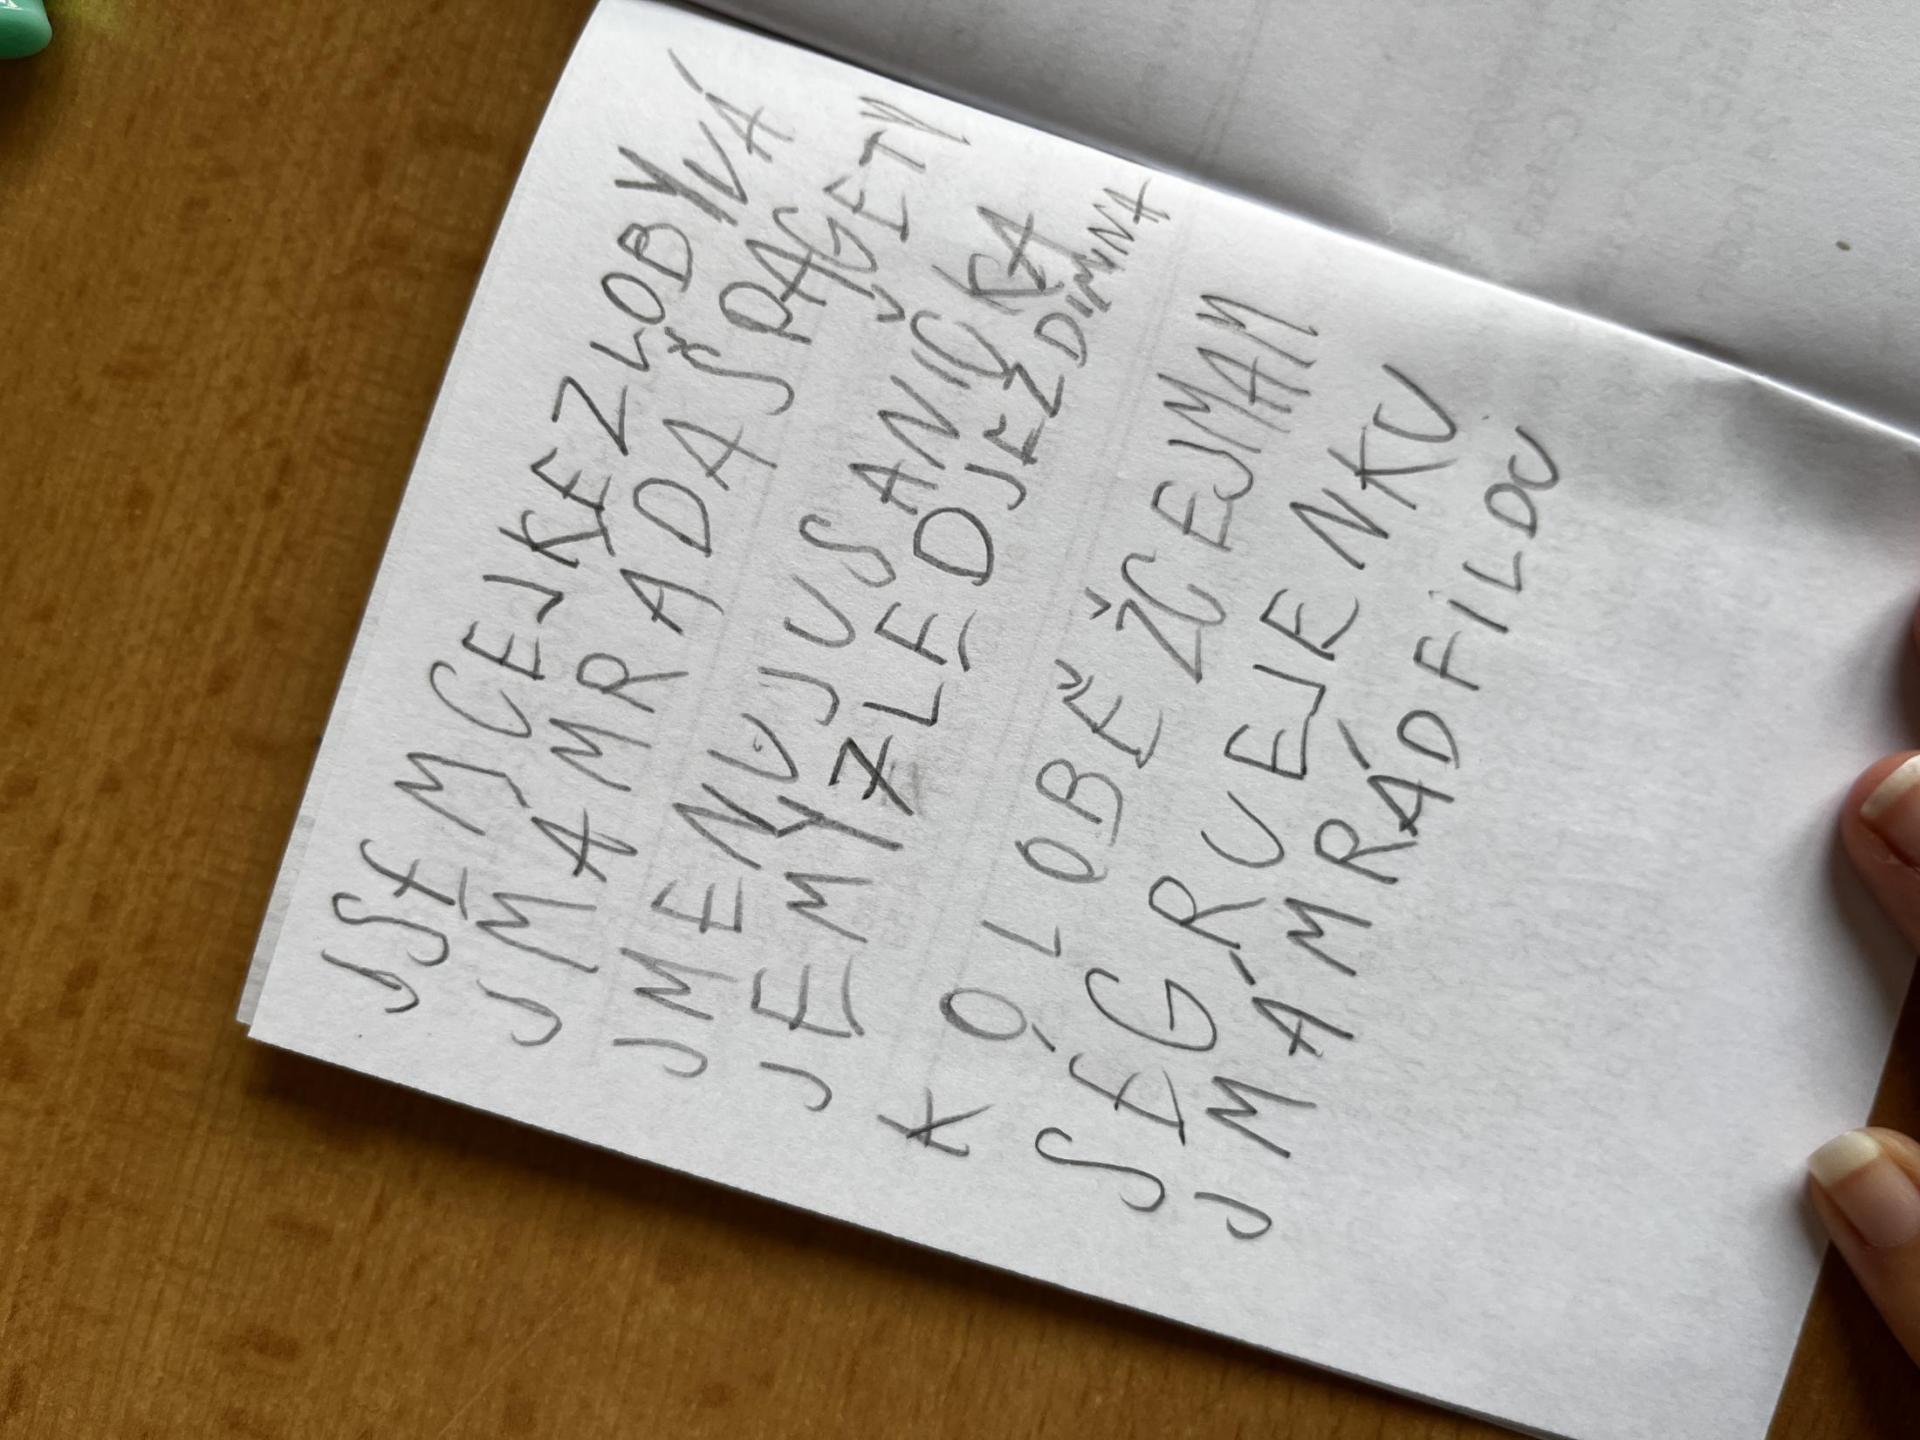 JSEMCEJKEZLOBYVÁ
JMAMRADAŠPAGETY
JMENUJUSANIČKA
JEMYZLEDJEZDIMNA
KOLOBĚŽCEJMAM
SEGRUEJENKU
JMÁMRÁDFILDU